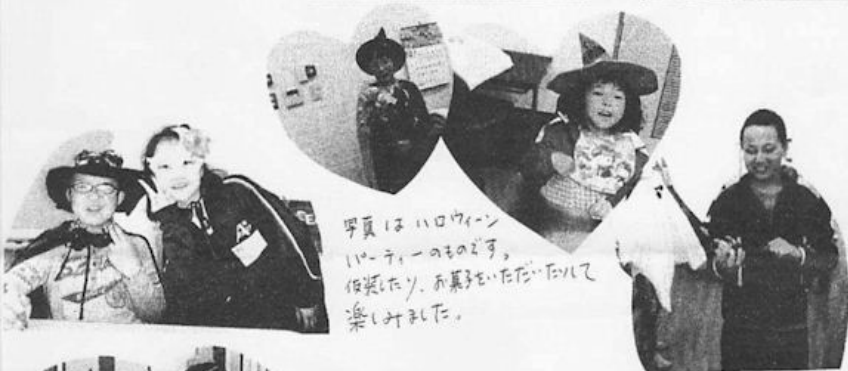 写真はハロウィーン
パーティーのものです。
仮装したり、お菓子をいただいたりして
楽しみました。